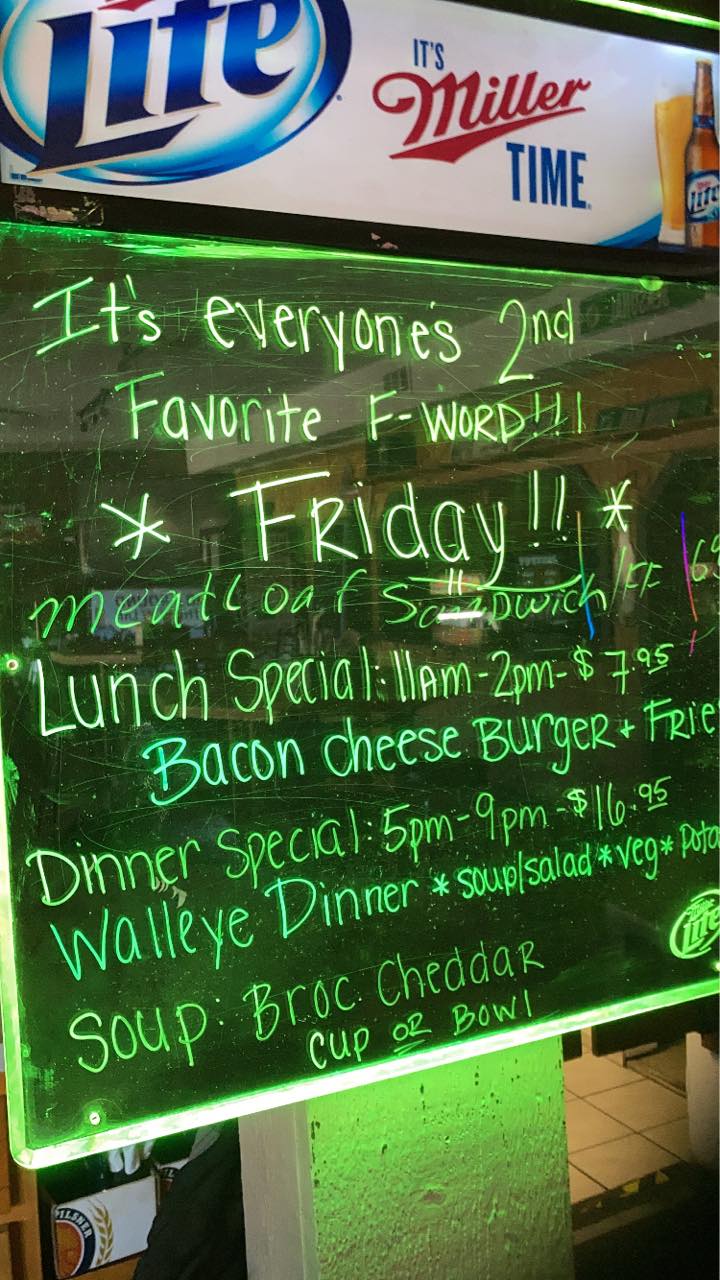 Lite
IT'S
Miller
TIME
Lite
It's everyone's 2nd
Favorite F-WORD!!!
* FRiday!! *
meatloaf Sandwich/FF
Lunch Special: 11am-2pm-$7.95
Bacon cheese BurgeR + FRie
Dinner Special: 5pm-9pm-$16.95
Walleye Dinner * soup/salad * veg * pota
Lite
Soup: Broc Cheddar
cup or Bowl
PILSNER